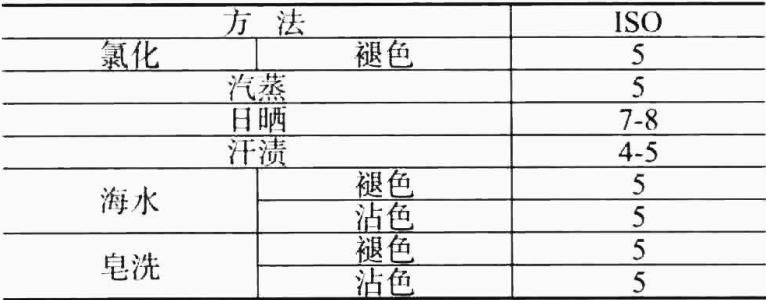 方 法 ISO
氯化 褪色 5
汽蒸 5
日晒 7-8
汗渍 4-5
海水 褪色 5
沾色 5
皂洗 褪色 5
沾色 5